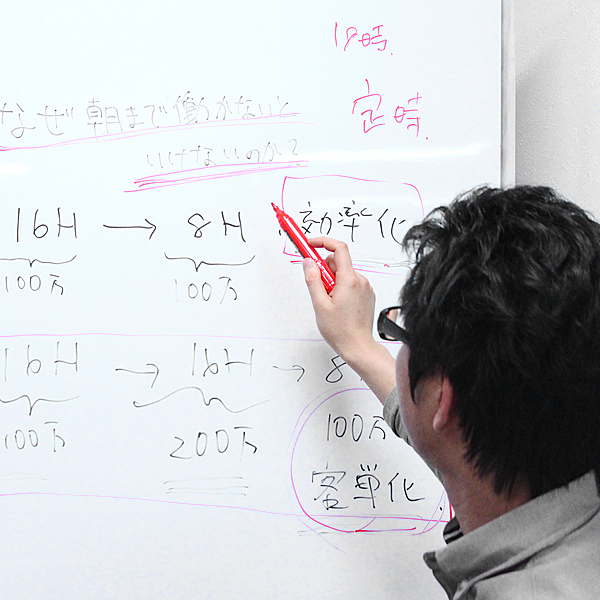 18時.
定時.
なぜ朝まで働かないと
いけないのか?
16H → 8H 効率化
100万 100万
16H → 16H → 8
100万 200万 100万
客単化.